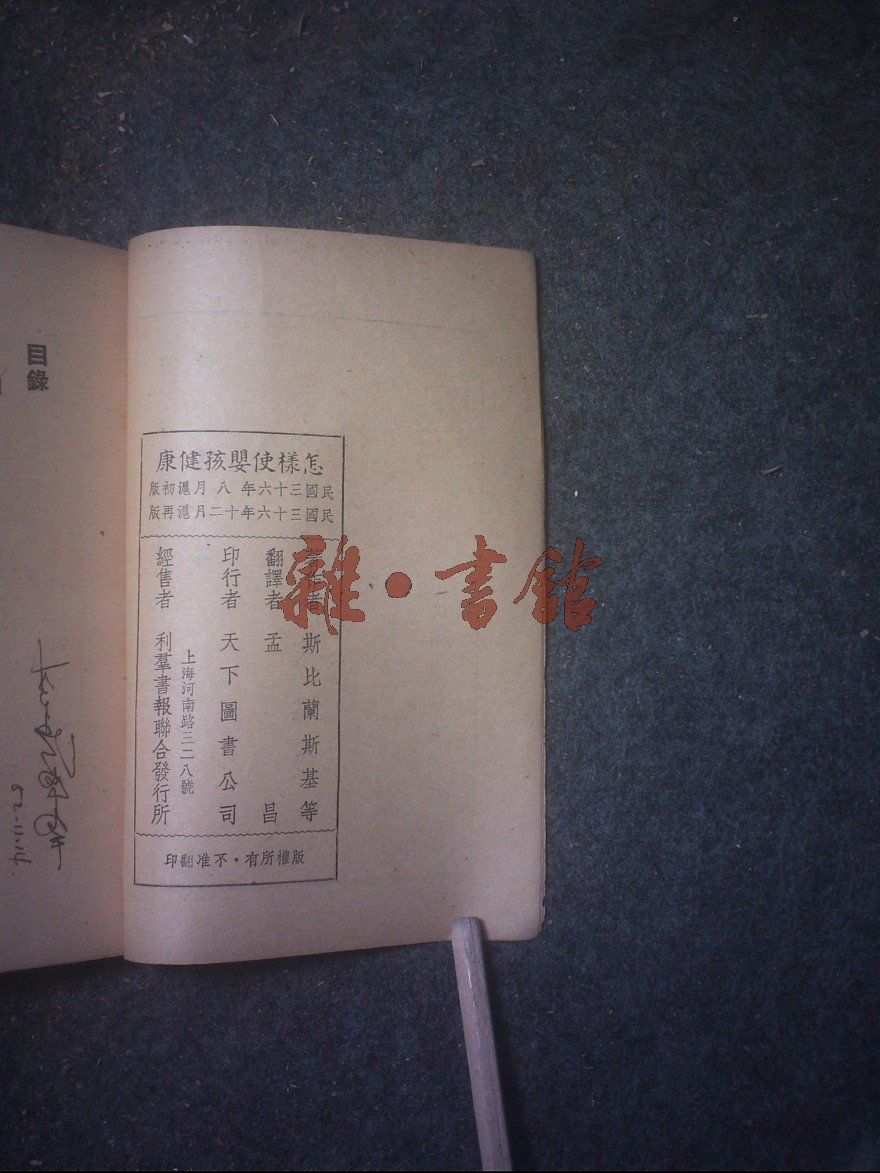 怎樣使嬰孩健康
民國三十六年八月滬初版
民國三十六年十二月滬再版
者 斯比蘭斯基等
翻譯者 孟昌
印行者 天下圖書公司
上海河南路三二八號
經售者 利羣書報聯合發行所
版權所有·不准翻印
目錄
52.11.14.
雜·書館